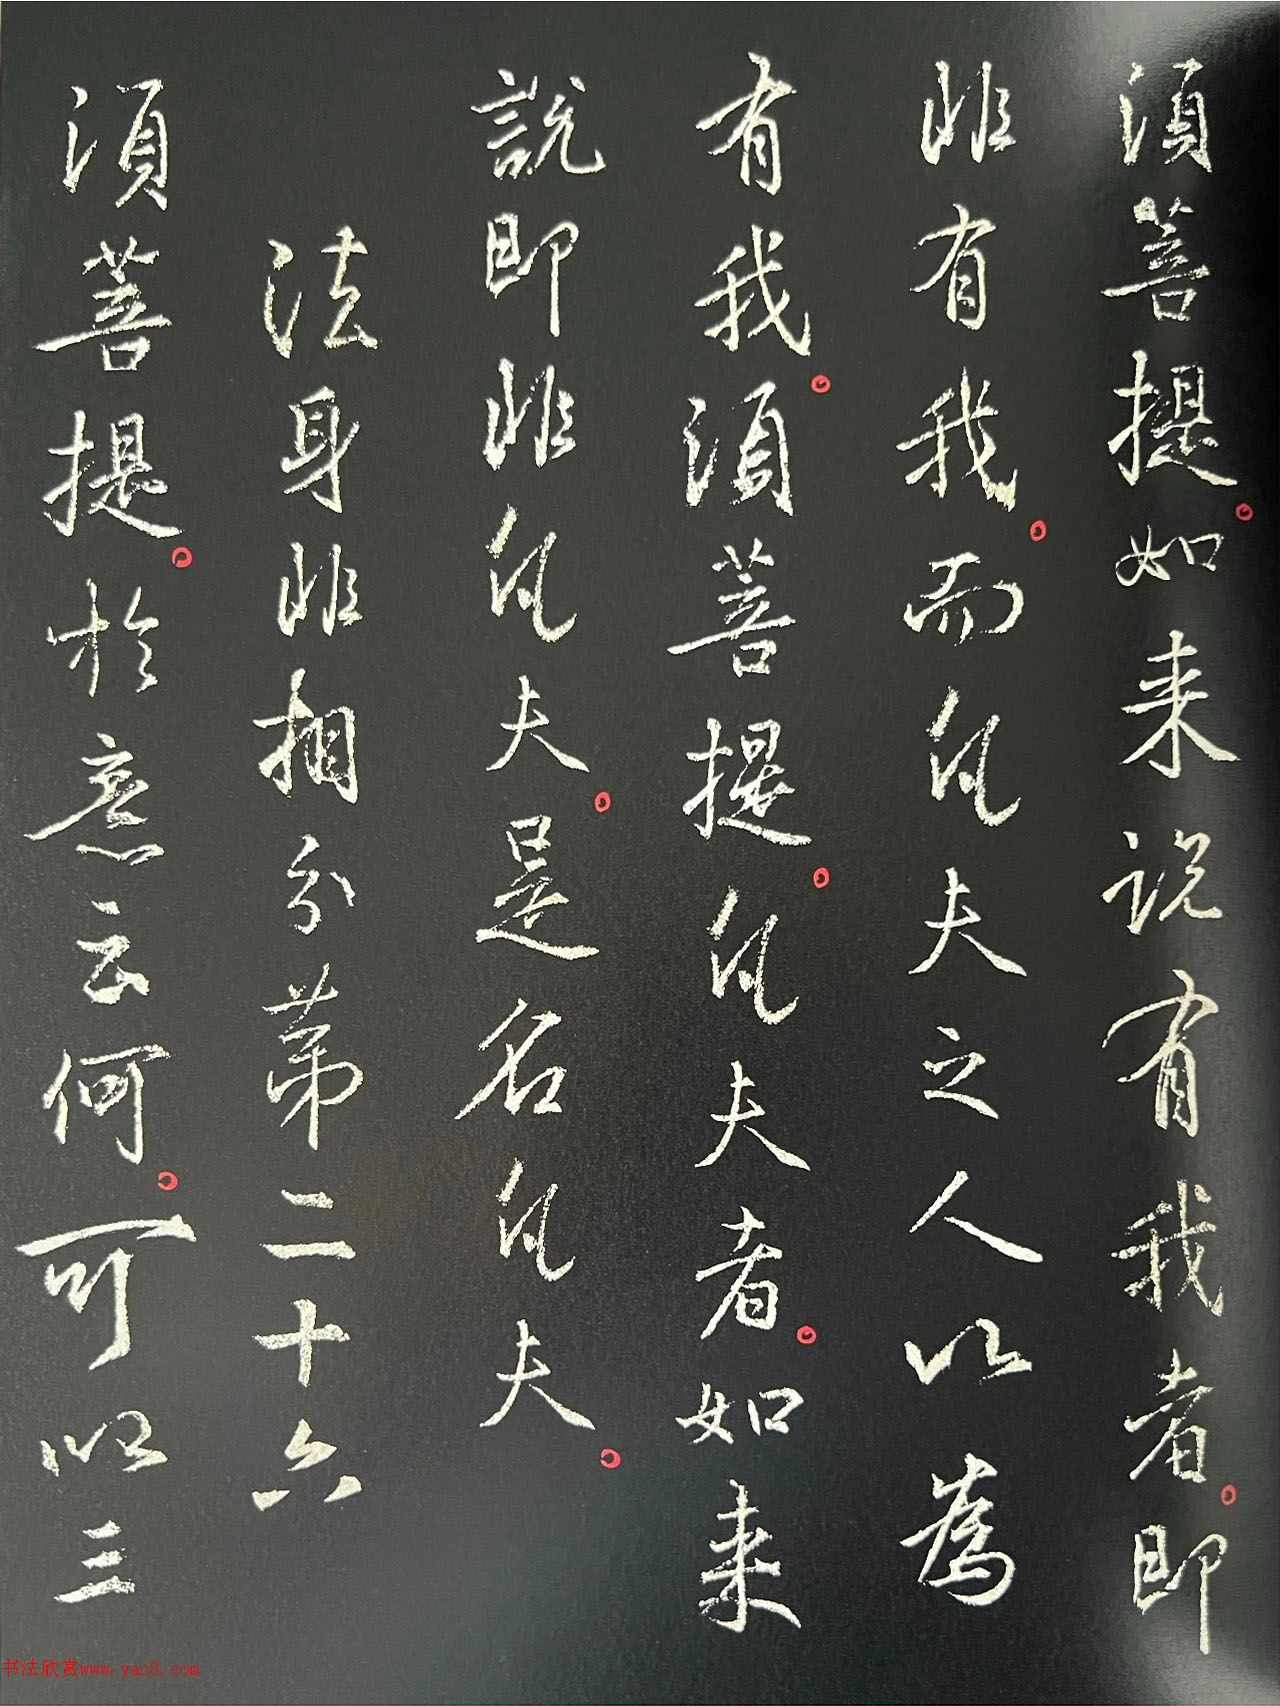 须菩提。如来说有我者。即
非有我。而凡夫之人以為
有我。須菩提。凡夫者。如来
説即非凡夫。是名凡夫。
法身非相分第二十六
須菩提。於意云何。可以三
书法欣赏www.yac8.com